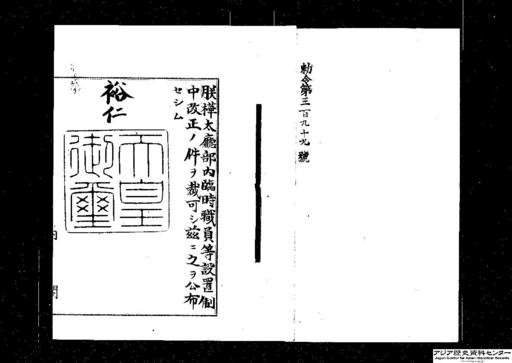 勅令第三百九十九號
朕樺太廳部內臨時職員等設置制
中改正ノ件ヲ裁可シ茲ニ之ヲ公布
セシム
裕仁
天皇
御璽
內閣
アジア歴史資料センター
Japan Center for Asian Historical Records